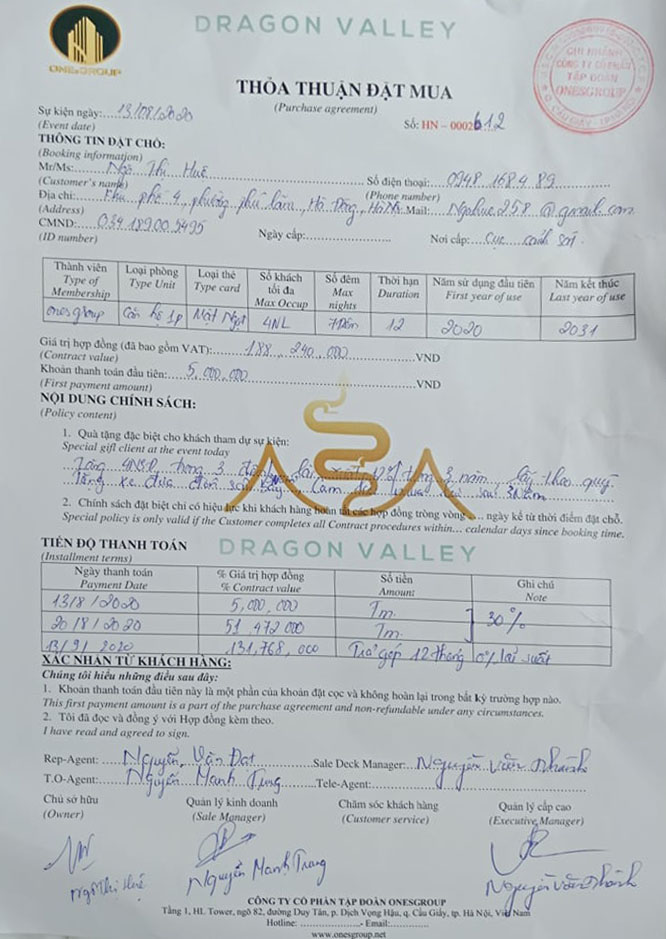 DRAGON VALLEY
ONESGROUP
CHI NHÁNH
CÔNG TY CỔ PHẦN
TẬP ĐOÀN
ONESGROUP
Q. CẦU GIẤY - TP. HÀ NỘI
THỎA THUẬN ĐẶT MUA
(Purchase agreement)
Sự kiện ngày: 13/08/2020
(Event date)
Số: HN – 0002612
THÔNG TIN ĐẶT CHỖ:
(Booking information)
Mr/Ms: Ngô Thị Huê Số điện thoại: 0948 168 4 89
(Customer's name) (Phone number)
Địa chỉ: Khu phố 4, phường phú lãm, Hà Đông, Hà Nội Mail: Ngohue258@gmail.com
(Address)
CMND: 034 189 00 5495 Ngày cấp: Nơi cấp: Cục cảnh sát
(ID number)
Thành viên Loại phòng Loại thẻ Số khách tối đa Số đêm Thời hạn Năm sử dụng đầu tiên Năm kết thúc
Type of Membership Type Unit Type card Max Occup Max nights Duration First year of use Last year of use
onesgroup Căn hộ 1p Mật Ngọt 4NL 7 Đêm 12 2020 2031
Giá trị hợp đồng (đã bao gồm VAT): 188, 240, 000 VND
(Contract value)
Khoản thanh toán đầu tiên: 5,000,000 VND
(First payment amount)
NỘI DUNG CHÍNH SÁCH:
(Policy content)
1. Quà tặng đặc biệt cho khách tham dự sự kiện:
Special gifl client at the event today
Tặng trong 3 lãi suất 12% trong 3 năm, lấy theo quý
Tặng xe đưa đón sân bay, sau 3 Năm
2. Chính sách đặt biệt chỉ có hiệu lực khi khách hàng hoàn tất các hợp đồng tròng vòng … ngày kể từ thời điểm đặt chỗ.
Special policy is only valid if the Customer completes all Contract procedures within… calendar days since booking time.
TIẾN ĐỘ THANH TOÁN DRAGON VALLEY
(Installment terms)
Ngày thanh toán % Giá trị hợp đồng Số tiền Ghi chú
Payment Date % Contract value Amount: Note
13/8/2020 5,000,000 Tm. 30%
20/8/2020 51 472 000 Tm.
13/9/2020 131,768,000 Trả góp 12 tháng 0% lãi suất
XÁC NHẬN TỪ KHÁCH HÀNG:
Chúng tôi hiểu những điều sau đây:
1. Khoản thanh toán đầu tiên này là một phần của khoản đặt cọc và không hoàn lại trong bất kỳ trường hợp nào.
This first payment amount is a part of the purchase agreement and non-refundable under any circumstances.
2. Tôi đã đọc và đồng ý với Hợp đồng kèm theo.
I have read and agreed to sign.
Rep-Agent: Nguyễn Văn Đạt Sale Deck Manager: Nguyễn Văn Thành
T.O-Agent: Nguyễn Mạnh Trung Tele-Agent:
Chủ sở hữu Quản lý kinh doanh Chăm sóc khách hàng Quản lý cấp cao
(Owner) (Sale Manager) (Customer service) (Executive Manager)
Ngô Thị Huê Nguyễn Mạnh Trung Nguyễn Văn Thành
CÔNG TY CỔ PHẦN TẬP ĐOÀN ONESGROUP
Tầng 1, HL Tower, ngõ 82, đường Duy Tân, p. Dịch Vọng Hậu, q. Cầu Giấy, tp. Hà Nội, Việt Nam
Hotline: - Email:
www.onesgroup.net